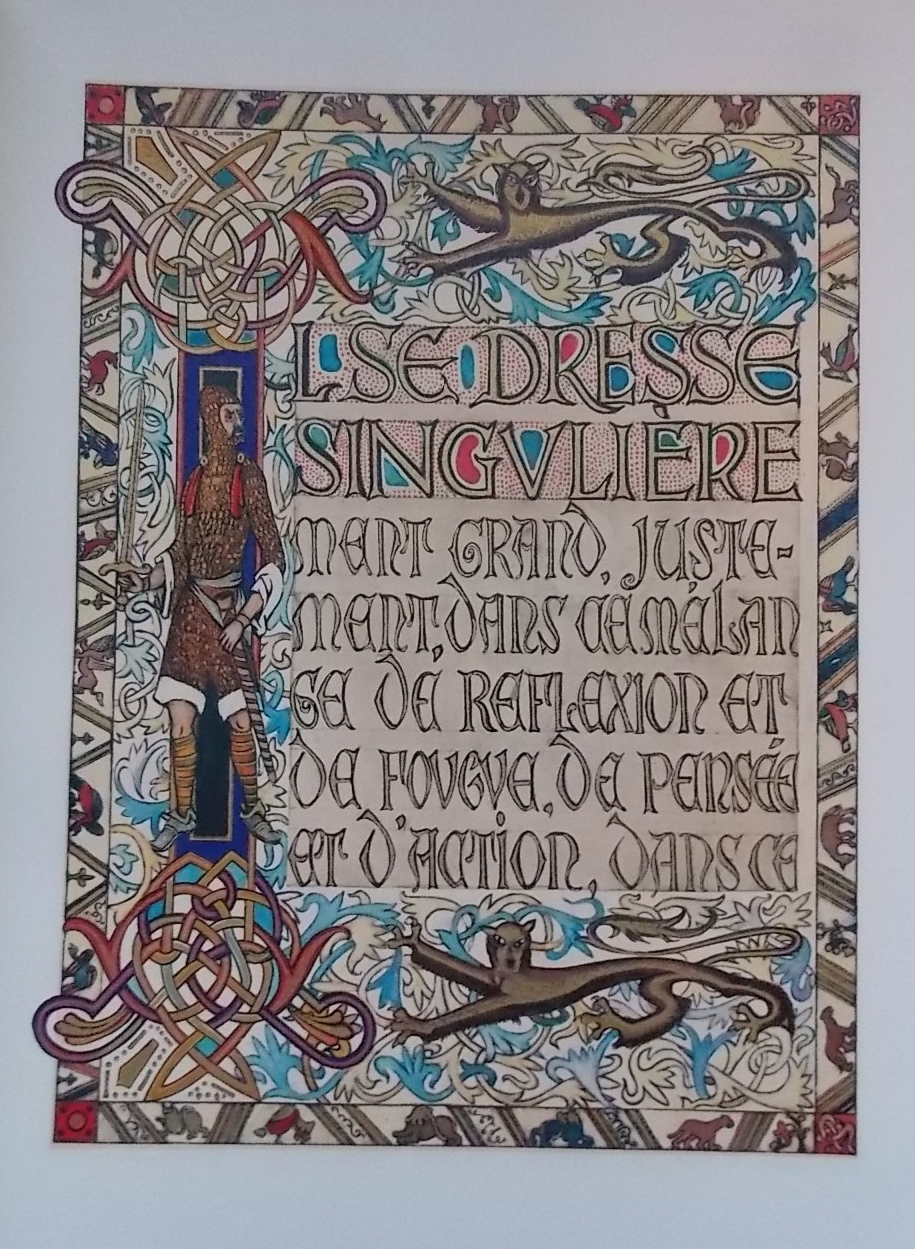 IL SE DRESSE
SINGVLIÈRE
MENT GRAND, JUSTE-
MENT, DANS CE MÉLAN
GE DE REFLEXION ET
DE FOVGVE, DE PENSÉE
ET D'ACTION, DANS CE